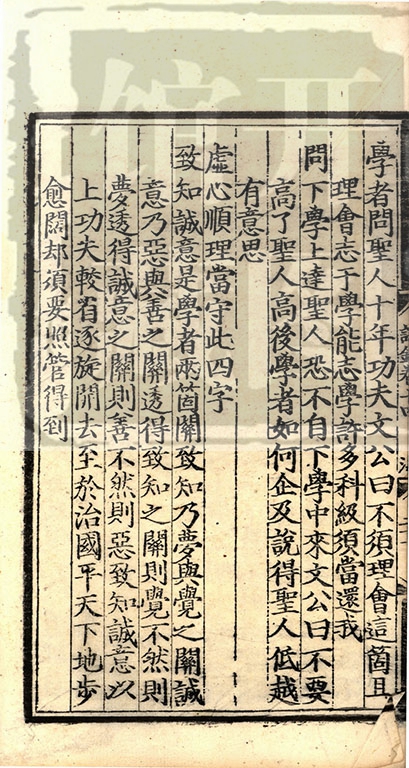 學者問聖人十年功夫文公曰不須理會這箇且
理會志于學能志學許多科級須當還我
問下學上達聖人恐不自下學中來文公曰不要
高了聖人高後學者如何企及說得聖人低越
有意思
虛心順理當守此四字
致知誠意是學者兩箇關致知乃夢與覺之關誠
意乃惡與善之關透得致知之關則覺不然則
夢透得誠意之關則善不然則惡致知誠意以
上功夫較省逐旋開去至於治國平天下地步
愈闊却須要照管得到